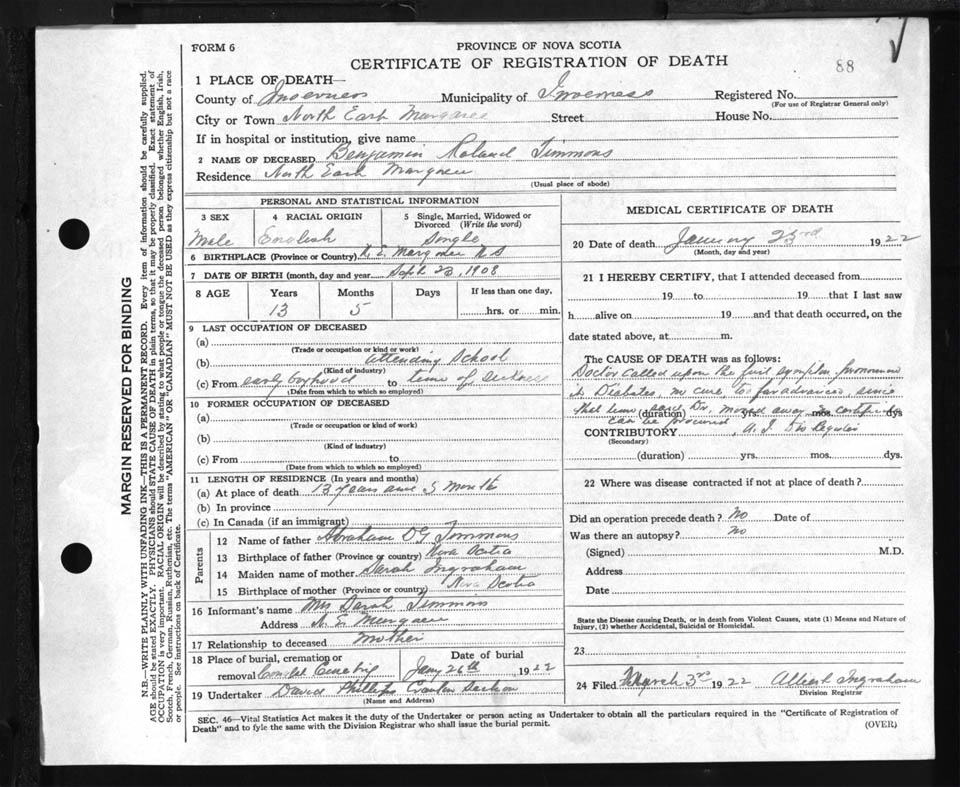 FORM 6
PROVINCE OF NOVA SCOTIA
CERTIFICATE OF REGISTRATION OF DEATH
88
1 PLACE OF DEATH—
County of Inverness Municipality of Inverness Registered No.
(For use of Registrar General only)
City or Town North East Margaree Street House No.
If in hospital or institution, give name
2 NAME OF DECEASED Benjamin Roland Timmons
Residence North East Margaree
(Usual place of abode)
PERSONAL AND STATISTICAL INFORMATION
3 SEX 4 RACIAL ORIGIN 5 Single, Married, Widowed or
Divorced (Write the word)
Male English Single
6 BIRTHPLACE (Province or Country) N. E. Margaree N S
7 DATE OF BIRTH (month, day and year) Sept 23, 1908
8 AGE Years Months Days If less than one day,
13 5 hrs. or min.
9 LAST OCCUPATION OF DECEASED
(a)
(Trade or occupation or kind or work)
(b) Attending School
(Kind of industry)
(c) From early boyhood to time of sickness
(Date from which to which so employed)
10 FORMER OCCUPATION OF DECEASED
(a)
(Trade or occupation or kind of work)
(b)
(Kind of industry)
(c) From to
(Date from which to which so employed)
11 LENGTH OF RESIDENCE (In years and months)
(a) At place of death 13 years and 5 months
(b) In province
(c) In Canada (if an immigrant)
Parents
12 Name of father Abraham Timmons
13 Birthplace of father (Province or country) Nova Scotia
14 Maiden name of mother Sarah Ingraham
15 Birthplace of mother (Province or country) Nova Scotia
16 Informant's name Mrs Sarah Timmons
Address N. E. Margaree
17 Relationship to deceased Mother
18 Place of burial, cremation or Date of burial
removal Cemetry Jany 26th, 1922
19 Undertaker David Phillips
(Name and Address)
MEDICAL CERTIFICATE OF DEATH
20 Date of death January 23rd 1922
(Month, day and year)
21 I HEREBY CERTIFY, that I attended deceased from
19 to 19 that I last saw
h alive on 19 and that death occurred, on
date stated above, at m.
The CAUSE OF DEATH was as follows:
Doctor called upon the first
it Diabetes no cure, to far advanced, since
that time said Dr. moved away no certificate
(duration) yrs. mos. dys
can be procured,
CONTRIBUTORY
(Secondary)
(duration) yrs. mos. dys.
22 Where was disease contracted if not at place of death?
Did an operation precede death? No Date of
Was there an autopsy? No
(Signed) M.D.
Address
Date
State the Disease causing Death, or in death from Violent Causes, state (1) Means and Nature of
Injury, (2) whether Accidental, Suicidal or Homicidal.
23
24 Filed March 3rd 1922 Albert Ingraham
Division Registrar
SEC. 46—Vital Statistics Act makes it the duty of the Undertaker or person acting as Undertaker to obtain all the particulars required in the "Certificate of Registration of
Death" and to fyle the same with the Division Registrar who shall issue the burial permit.
(OVER)
MARGIN RESERVED FOR BINDING
N.—WRITE PLAINLY WITH UNFADING INK—THIS IS A PERMANENT RECORD. Every item of information should be carefully supplied.
AGE should be stated EXACTLY. PHYSICIANS should STATE CAUSE OF DEATH in plain terms, so that it may be properly classified. Exact statement of
OCCUPATION is very important. RACIAL ORIGIN will be described by stating to what people or tongue the deceased person belonged whether English, Irish,
Scotch, French, German, Russian, Ruthenian, etc. The terms "AMERICAN" OR CANADIAN" MUST NOT BE USED as they express citizenship but not a race
or people. See instructions on back of Certificate.